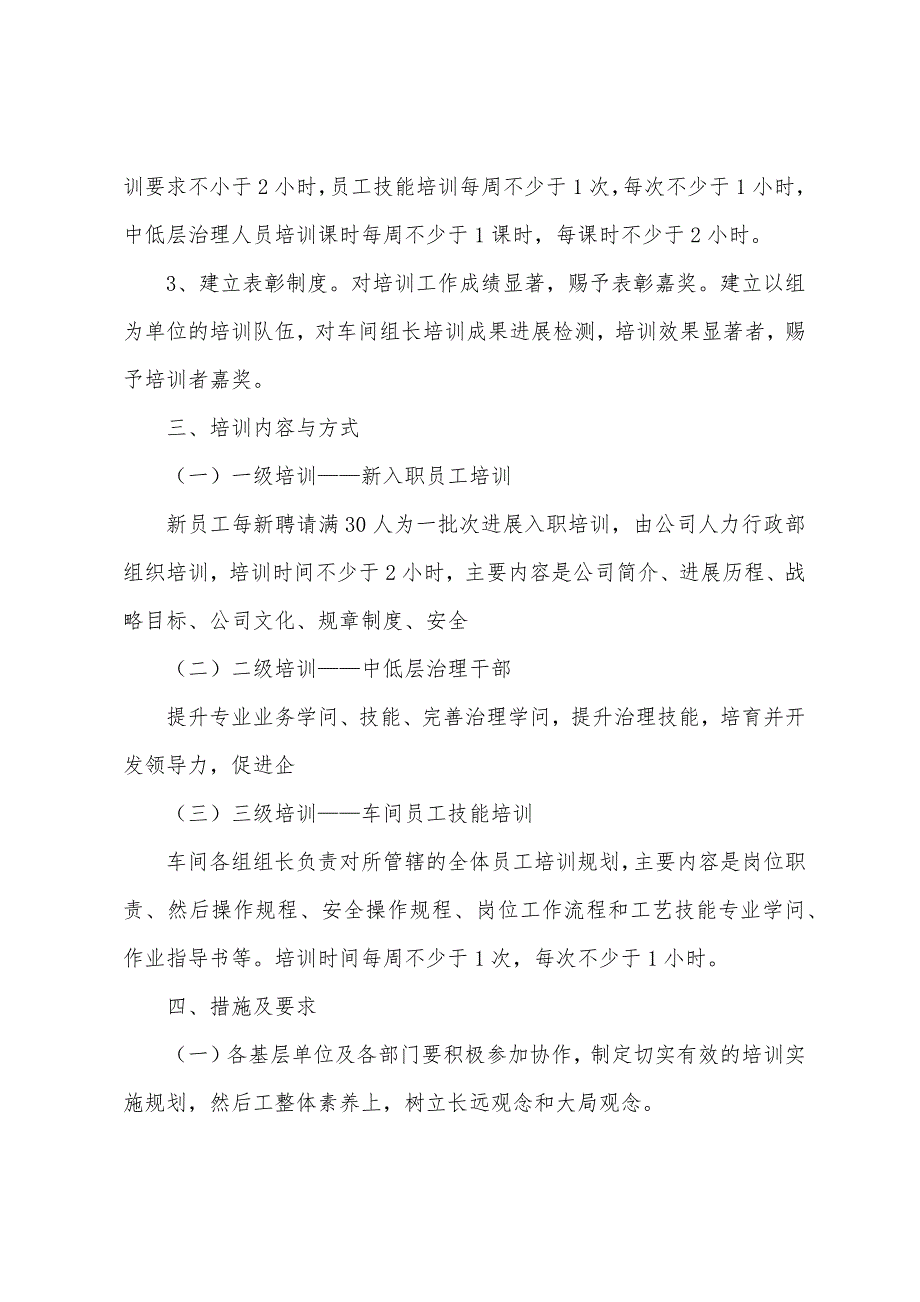 训要求不小于2小时,员工技能培训每周不少于1次,每次不少于1小时,
中低层治理人员培训课时每周不少于1课时，每课时不少于2小时。
3、建立表彰制度。对培训工作成绩显著，赐予表彰嘉奖。建立以组
为单位的培训队伍，对车间组长培训成果进展检测，培训效果显著者，赐
予培训者嘉奖。
三、培训内容与方式
（一）一级培训——新入职员工培训
新员工每新聘请满30人为一批次进展入职培训，由公司人力行政部
组织培训，培训时间不少于2小时，主要内容是公司简介、进展历程、战
略目标、公司文化、规章制度、安全
（二）二级培训——中低层治理干部
提升专业业务学问、技能、完善治理学问，提升治理技能，培育并开
发领导力，促进企
（三）三级培训——车间员工技能培训
车间各组组长负责对所管辖的全体员工培训规划，主要内容是岗位职
责、然后操作规程、安全操作规程、岗位工作流程和工艺技能专业学问、
作业指导书等。培训时间每周不少于1次，每次不少于1小时。
四、措施及要求
（一）各基层单位及各部门要积极参加协作，制定切实有效的培训实
施规划，然后工整体素养上，树立长远观念和大局观念。